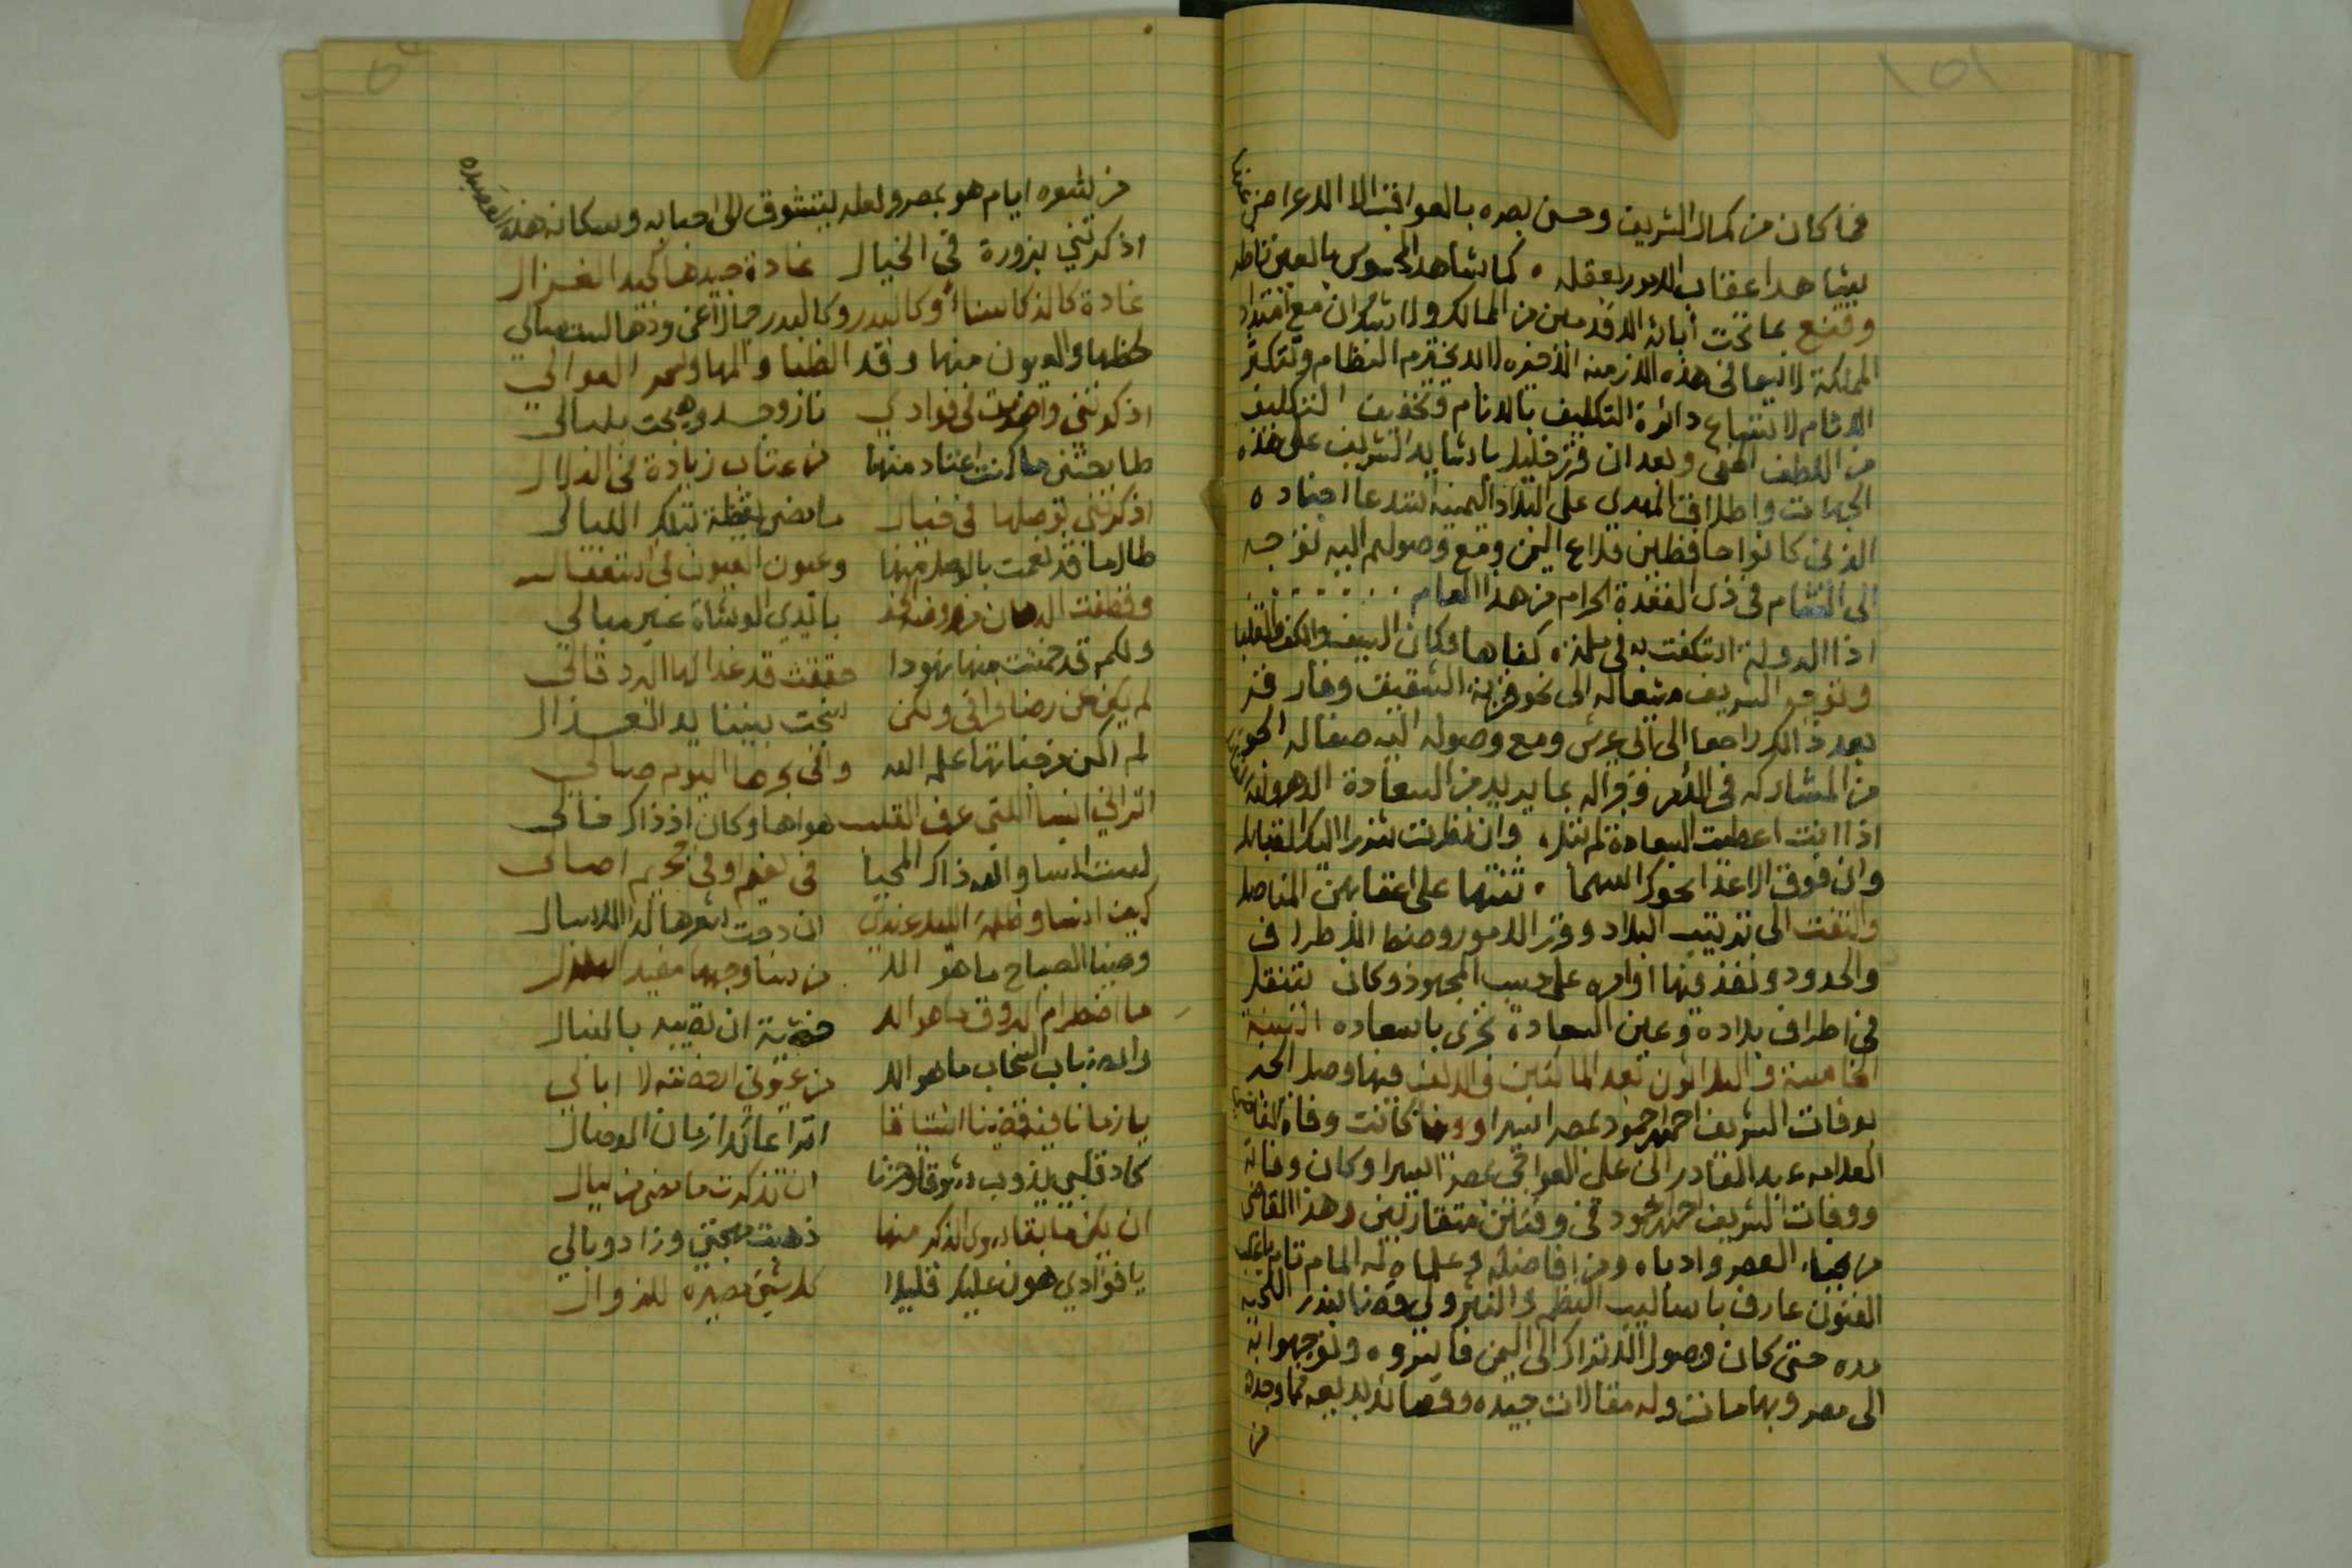 ١٥١
فما كان من كمال الشريف وحسن بصره بالعواقب الا الاعراض عنها
يشاهد اعقاب الامور بعقله ٠ كما يشاهد المحسوس بالعين ناظر
وقنع بما تحت آبائه الاقدمين من الممالك ولا شك ان مع امتداد
المملكة لا سيما في هذه الازمنة الاخيره لابد يخترم النظام وتكثر
الاثام لاتساع دائرة التكليف بالانام وتخفيف التكليف
من اللطف الخفي وبعد ان قرر خليل باشا يد الشريف على هذه
الجهات واطلاق المهدي على البلاد اليمنية استدعا اجناده
الذين كانوا حافظين قلاع اليمن ومع وصولهم اليه توجه
الى الشام في ذي القعدة الحرام من هذا العام
اذا الدولة استكفت به في ملمة ٠ كفاها وكان السيف والكف والقلبا
وتوجه الشريف مشعاله الى نحو قرية الشقيق وفارقه
بعد ذالك راجعا الى ابي عريش ومع وصوله اليه صفا له الجو
من المشاركه في الامر وقر له بما يريد من السعادة الدهر
اذا انت اعطيت السعادة لم تبل ٠ وان نظرت شزرا اليك القبائل
وان فوق الاعدا نحوك اسهما ٠ ثنتها على اعقابهن المناصل
والتفت الى ترتيب البلاد وقرر الامور وضبط الاطراف
والحدود ونفذ فيها اوامره على حسب المجهود وكان يتنقل
في اطراف بلاده وعين السعادة ترى باسعاده السنة
الخامسة و الثلاثون بعد الماتين والالف فيها وصل الخبر
بوفات الشريف احمد حمود بمصر اسيرا وفيها كانت وفاة القاضي
العلامه عبد القادر ابن علي العواجي بمصر اسيرا وكان وفاته
ووفات الشريف احمد حمود في وقتين متقاربين وهذا القاضي
من نجباء العصر وادباه ومن افاضله وعلماه له المام تام
الفنون عارف باساليب النظم والنثر ولي قضا بندر اللحيه
مده حتى كان وصول الاتراك الى اليمن فاسروه وتوجهوا به
الى مصر وبها مات وله مقالات جيده وقصائد بديعه فما وجدته
من
من شعره ايام هو بمصر ولعله يتشوق الى احبابه وسكانه هذه القصيده
اذكرتني بزورة في الخيال غادة جيدها كجيد الغزال
غادة كالذكا سناً وكالبدر وكالبدر جمالا عن ودها لست سالي
لحظها والعيون منها وقد الظبا والمها وسمر العوالي
اذكرتني واضرمت في فوادي نار وجد وهيجت بلبالي
طابحتني ما كنت اعتاد منها من عتاب زيادة في الدلال
اذكرتني بوصلها في خيال ما مضى يقظة لتلك الليالي
طالما قد نعمت بالوصل منها وعيون العيون في اشتغال
وقطفت الامان من روضة بايدي الوشاة غير مبالي
ولكم قد جنيت منها نهودا حققت قد غدا لها الردقالي
لم يكن عن رضا فراقي ولكن سخت بيننا يد العذال
لم اكن من جناتها علم الله واني بحرها اليوم صالي
اتراني انسا التي عرف القلب هواها وكان اذ ذاك خالي
لست انسا والله ذاك المحيا في نعيم وفي جحيم اصالي
كيف انسا وظلمة الليل عندي ان دجت شعرها لدا الانسبال
وضيا الصباح ما هو الا من سنا وجهها مفيد الهلال
ما اضطرام البروق ما هو الا خشية ان تصيبه بالنبال
وانصباب السحاب ما هو الا من عيوني افضته لا ابالي
يا زمانا فيه قضينا اشتياقا اترا عائدا زمان الوصال
كاد قلبي يذوب شوقا وحزنا ان تذكرت ما مضى من ليال
ان يكن ما بقا سوى الذكر منها ذهبت مهجتي وزاد وبالي
يا فؤادي هون عليك قليلا كل شيئ مصيره للزوال